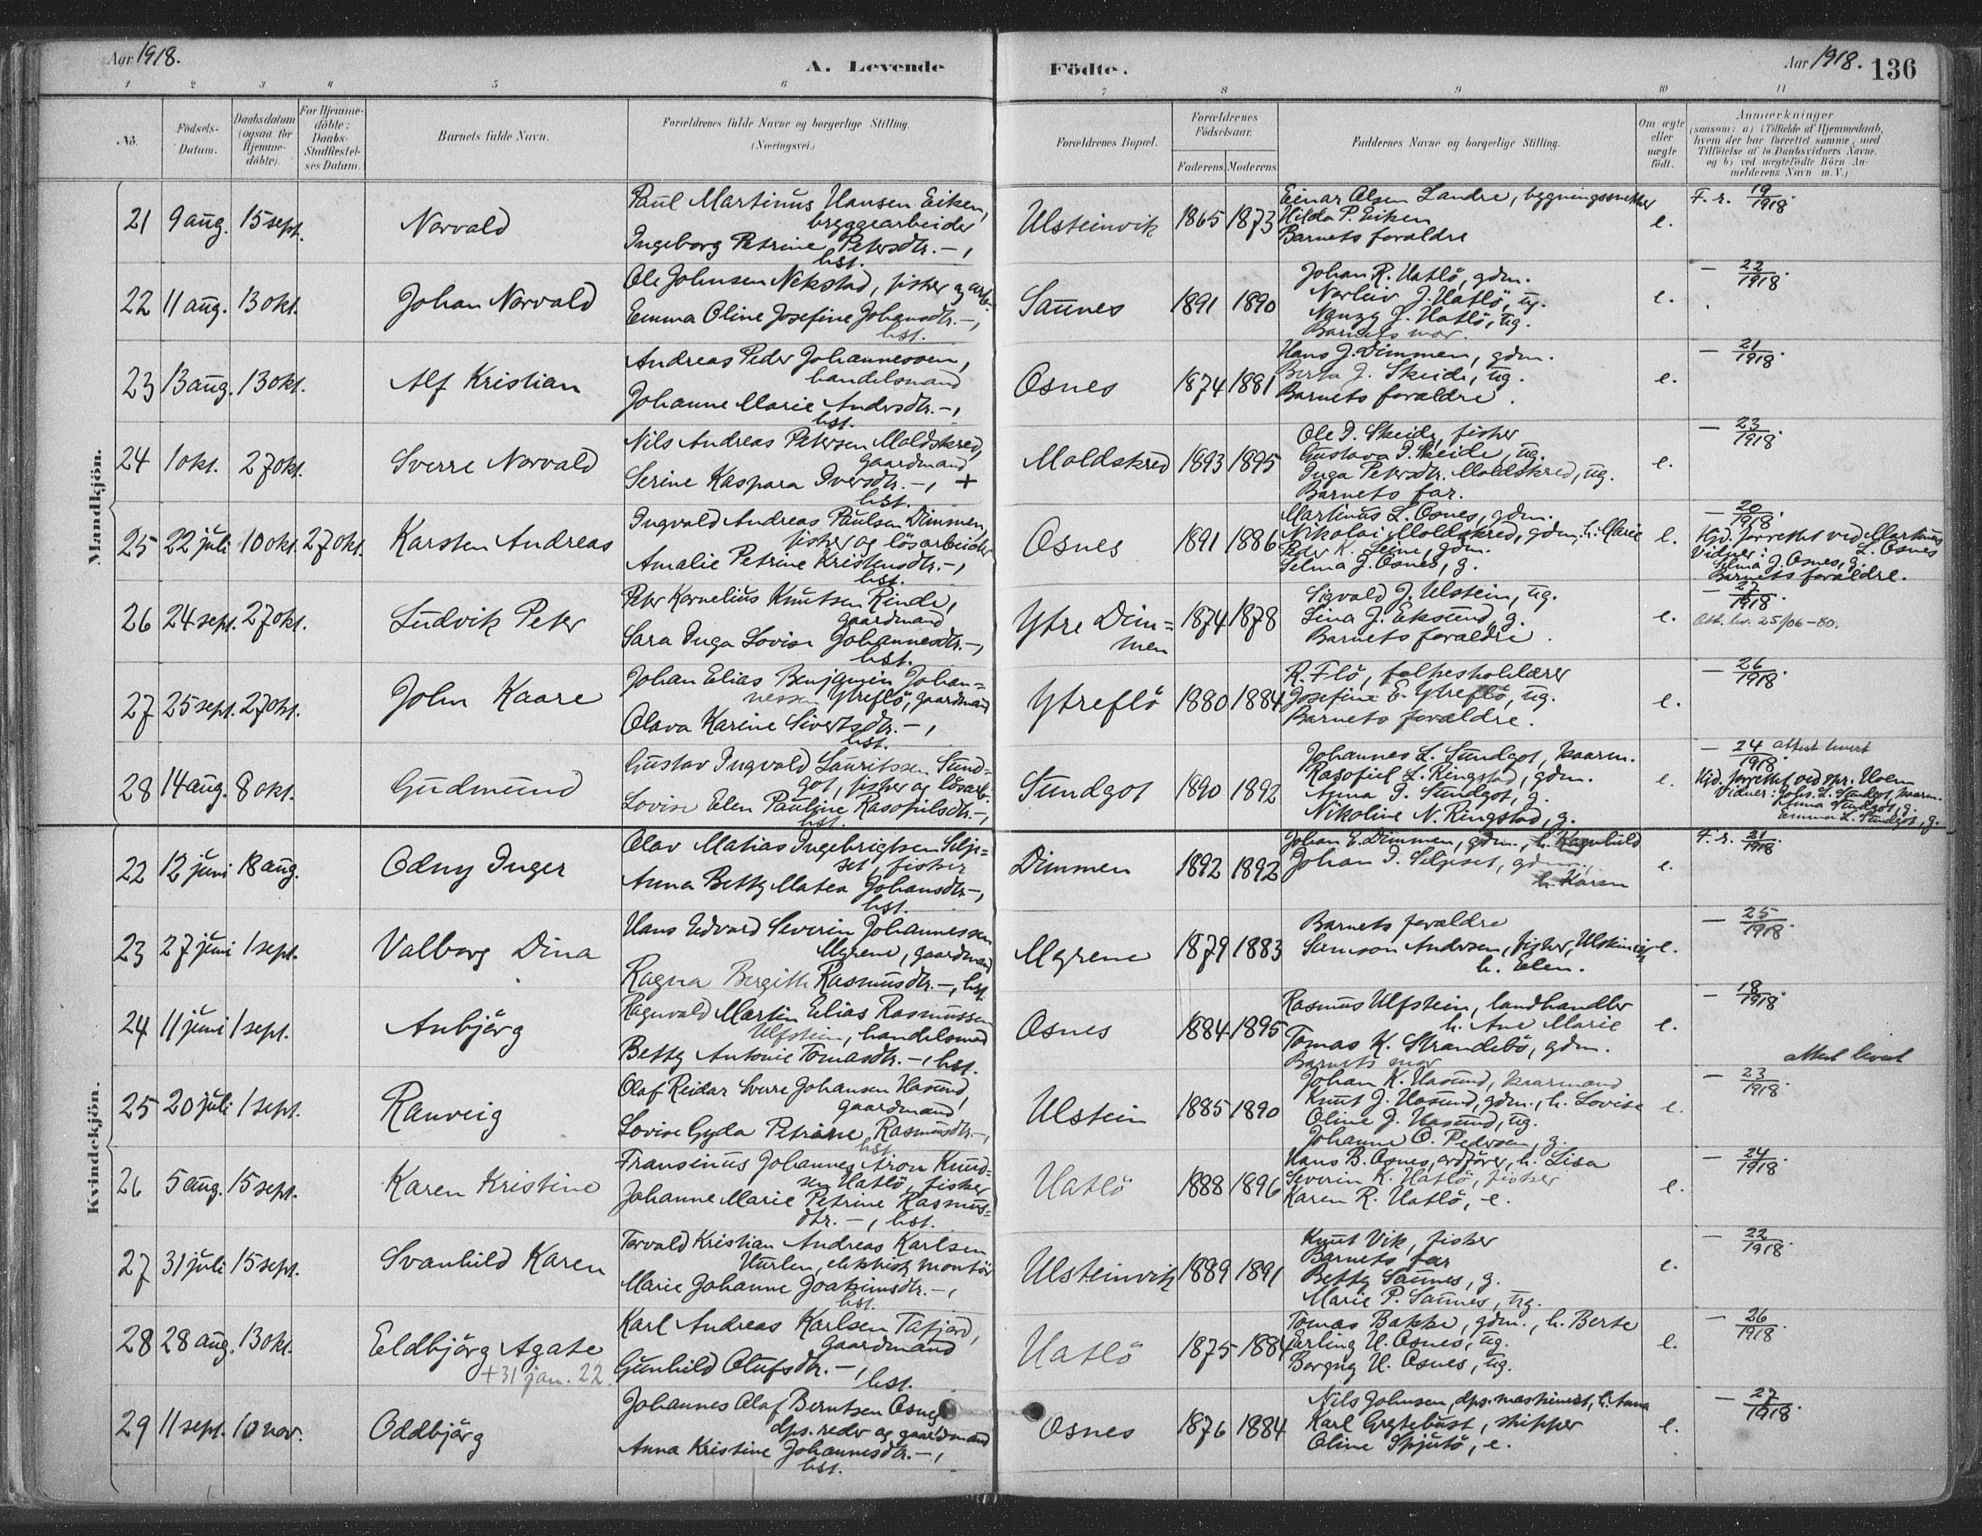 Aar 1918.
A. Levende
Födte.
Aar 1918. 136
1 2 3 4 5 6 7 8 9 10 11
No.
Födsels-Datum.
Daabsdatum (ogsaa for Hjemmedöbte).
For Hjemmedöbte: Daabs-Stadfæstelses Datum.
Barnets fulde Navn.
Forældrenes fulde Navne og borgerlige Stilling.
(Næringsvei.)
Forældrenes Bopæl.
Forældrenes Födselsaar.
Faderens. Moderens.
Faddernes Navne og borgerlige Stilling.
Om ægte eller uægte födt.
Anmærkninger
(saasom: a) i Tilfælde af Hjemmedaab,
hvem der har forrettet samme, med
Tilföielse af to Daabsvidners Navne,
og b) ved uægtefödte Börn Anmelderens Navn m. V.)
Mandkjön.
21 9 aug. 15 sept. Norvald
Paul Martinus Hansen Eiken,
bryggearbeider
Ingeborg Petrine Petersdtr. —,
hst.
Ulsteinvik 1865 1873
Einar Olsen Landre,
Hilda P. Eiken
Barnets forældre
e. F. r. 19/1918.
22 11 aug. 13 okt. Johan Norvald
Ole Johnsen Nekstad, fisker og arb.
Emma Oline Josefine Johansdtr. —,
hst.
Saunes 1891 1890
Johan R. Hatlö, gdm.
Norleiv J. Hatlö, ug.
Nanzy J. Hatlö, ug.
Barnets mor.
e. — 22/1918.
23 13 aug. 13 okt. Alf Kristian
Andreas Peder Johannessen,
handelsmand
Johanne Marie Andersdtr. —,
hst.
Osnes 1874 1881
Hans J. Dimmen, gdm.
Berta J. Skeide, ug.
Barnets forældre.
e. — 21/1918.
24 1 okt. 27 okt. Sverre Norvald
Nils Andreas Petersen Moldskred,
gaardmand
Serine Kaspara Iversdtr. —, +
hst.
Moldskred 1893 1895
Ole I. Skeide, fisker
Gustava I. Skeide, ug.
Inga Petersdtr. Moldskred, ug.
Barnets far.
e. — 23/1918.
25 22 juli 10 okt. 27 okt. Karsten Andreas
Ingvald Andreas Paulsen Dimmen,
fisker og lösarbeider
Amalie Petrine Kristensdtr. —,
hst.
Osnes 1891 1886
Martinus L. Osnes, gdm.
Nikolai Moldskred, gdm., h. Marie
Peder K. Seine, gdm.
Selma J. Osnes, g.
e. — 20/1918.
Hjd. forrettet ved Martinus
Vidner: L. Osnes
Selma J. Osnes, g.
Barnets forældre.
26 24 sept. 27 okt. Ludvik Peter
Peter Kornelius Knutsen Rinde,
gaardmand
Sara Inga Lovise Johannesdtr. —,
hst.
Ytre Dim=
men 1874 1878
Sigvald J. Ulstein, ug.
Lina J. Eksund, g.
Barnets forældre.
e. — 27/1918.
Att. lev. 25/06-80.
27 25 sept. 27 okt. John Kaare
Johan Elias Benjamin Johan=
nessen Ytreflö, gaardmand
Olava Karine Sivertsdtr. —,
hst.
Ytreflö 1880 1884
R. Flö, folkeskolelærer
Josefine E. Ytreflö, ug.
Barnets forældre.
e. — 26/1918.
28 14 aug. 8 okt. Gudmund
Gustav Ingvald Lauritssen Sund=
got, fisker og lösarb.
Lovise Elen Pauline Rasofielsdtr. —,
hst.
Sundgot 1890 1892
Johannes L. Sundgot, kaarm.
Rasofiel L. Ringstad, gdm.
Anna I. Sundgot, g.
Nikoline N. Ringstad, g.
e. — 24/1918. attest levert
Hjd. forrettet ved spr. Holm
Vidner: Johs. L. Sundgot, kaarm.
Anna Sundgot, g.
Emma L. Sundgot, g.
Kvindekjön.
22 12 juni 18 aug. Odny Inger
Olav Matias Ingebrigtsen Selje=
set, fisker
Anna Betty Matea Johansdtr. —,
hst.
Dimmen 1892 1892
Johan E. Dimmen, gdm., h. Ragnhild
Johan I. Seljeset, gdm.,
h. Karen
e. F. r. 21/1918
23 27 juni 1 sept. Valborg Dina
Hans Edvard Severin Johannessen
Myrene, gaardmand
Ragna Bergith Rasmusdtr. —, hst.
Myrene 1879 1883
Barnets forældre
Samson Andersen, fisker, Ulsteinvik
h. Elen.
e. — 25/1918.
24 11 juni 1 sept. Anbjörg
Ragnvald Martin Elias Rasmussen
Ulfstein, handelsmand
Betty Antonie Tomasdtr. —, hst.
Osnes 1884 1895
Rasmus Ulfstein, landhandler
h. Ane Marie
Tomas K. Strandebö, gdm.
Barnets mor
e. — 18/1918
attest levert
25 20 juli 1 sept. Ranveig
Olaf Reidar Sverre Johansen Hasund,
gaardmand
Lovise Gyda Petrine Rasmusdtr. —,
hst.
Ulstein 1885 1890
Johan K. Hasund, kaarmand
Knut J. Hasund, gdm., h. Lovise
Oline J. Hasund, ug.
Johanne O. Pedersen, g.
e. — 23/1918.
26 5 aug. 15 sept. Karen Kristine
Fransinus Johannes Aron Knud=
sen Hatlö, fisker
Johanne Marie Petrine Rasmus=
dtr. —, hst.
Hatlö 1888 1896
Hans B. Osnes, ordförer, h. Lisa
Severin K. Hatlö, fisker
Karen R. Hatlö, e.
e. — 24/1918.
27 31 juli 15 sept. Svanhild Karen
Torvald Kristian Andreas Karlsen
Hurlen, elektrisk montör
Marie Johanne Joakimsdtr. —,
hst.
Ulsteinvik 1889 1891
Knut Vik, fisker
Barnets far
Betty Saunes, g.
Marie P. Saunes, ug.
e. — 22/1918.
28 28 aug. 13 okt. Eldbjörg Agate
+ 31 jan. 22.
Karl Andreas Karlsen Tafjord,
gaardmand
Gunhild Olufsdtr. —,
hst.
Hatlö 1875 1884
Tomas Bakke, gdm., h. Berte
Erling H. Osnes, ug.
Borgny H. Osnes, ug.
e. — 26/1918.
29 11 sept. 10 nov. Oddbjörg
Johannes Olaf Berntsen Osnes
dps. reder og gaardmand
Anna Kristine Johannesdtr. —,
hst.
Osnes 1876 1884
Nils Johnsen, dps. maskinist, h. Anna
Karl Grytebust, skipper
Oline Spjutö, e.
e. — 27/1918.